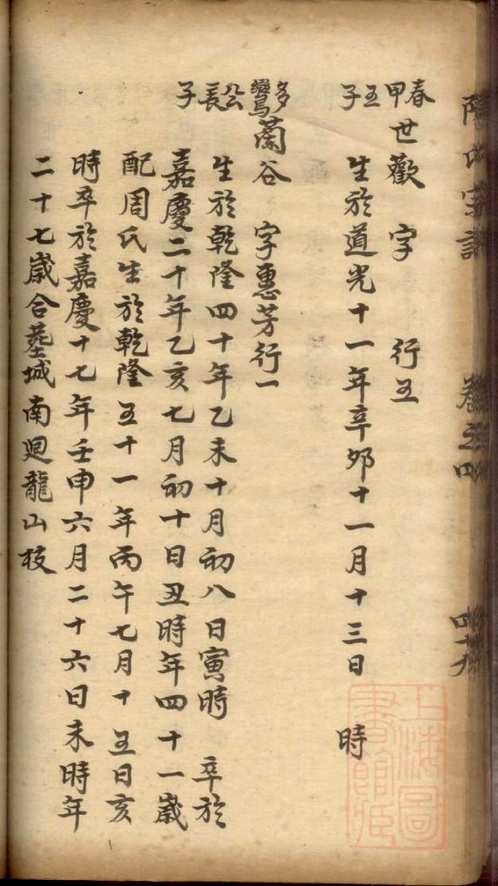 春甲五子
世歡 字 行五
生於道光十一年辛卯十一月十三日 時
多鸞公長子
蘭谷 字惠芳行一
生於乾隆四十年乙未十月初八日寅時 卒於
嘉慶二十年乙亥七月初十日丑時年四十一歲
配周氏生於乾隆五十一年丙午七月十五日亥
時卒於嘉慶十七年壬申六月二十六日未時年
二十七歲合墓城南迴龍山
上海圖書館藏